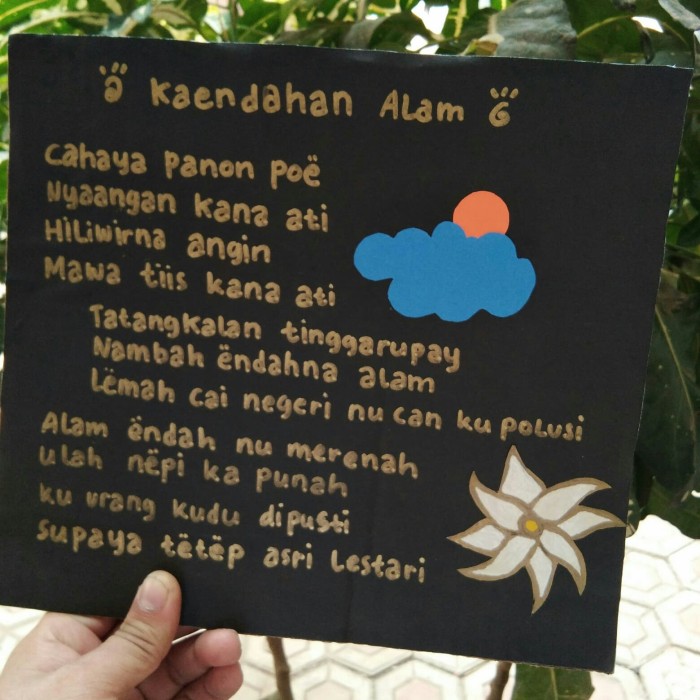 Kaendahan Alam
Cahaya panon poë
Nyaangan kana ati
Hiliwirna angin
Mawa tiis kana ati
Tatangkalan tinggarupay
Nambah ëndahna alam
Lëmah cai negeri nu can ku polusi
Alam ëndah nu merenah
ulah nëpi ka punah
ku urang kudu dipusti
supaya tëtëp asri lestari